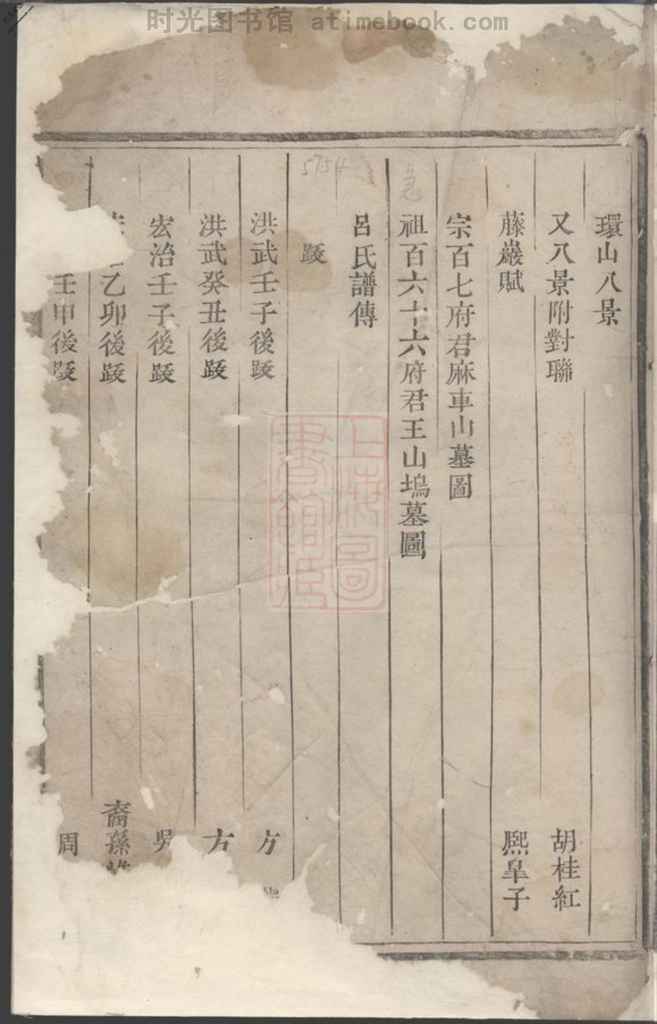 时光图书馆 atimebook.com
環山八景
又八景附對聯 胡桂紅
藤巖賦 熈皐子
宗百七府君麻車山墓圖
祖百六十六府君王山塢墓圖
呂氏譜傳
跋
5754
洪武壬子後跋 方
洪武癸丑後跋 方
宏治壬子後跋 吳
乙卯後跋 裔孫
壬甲後跋 周